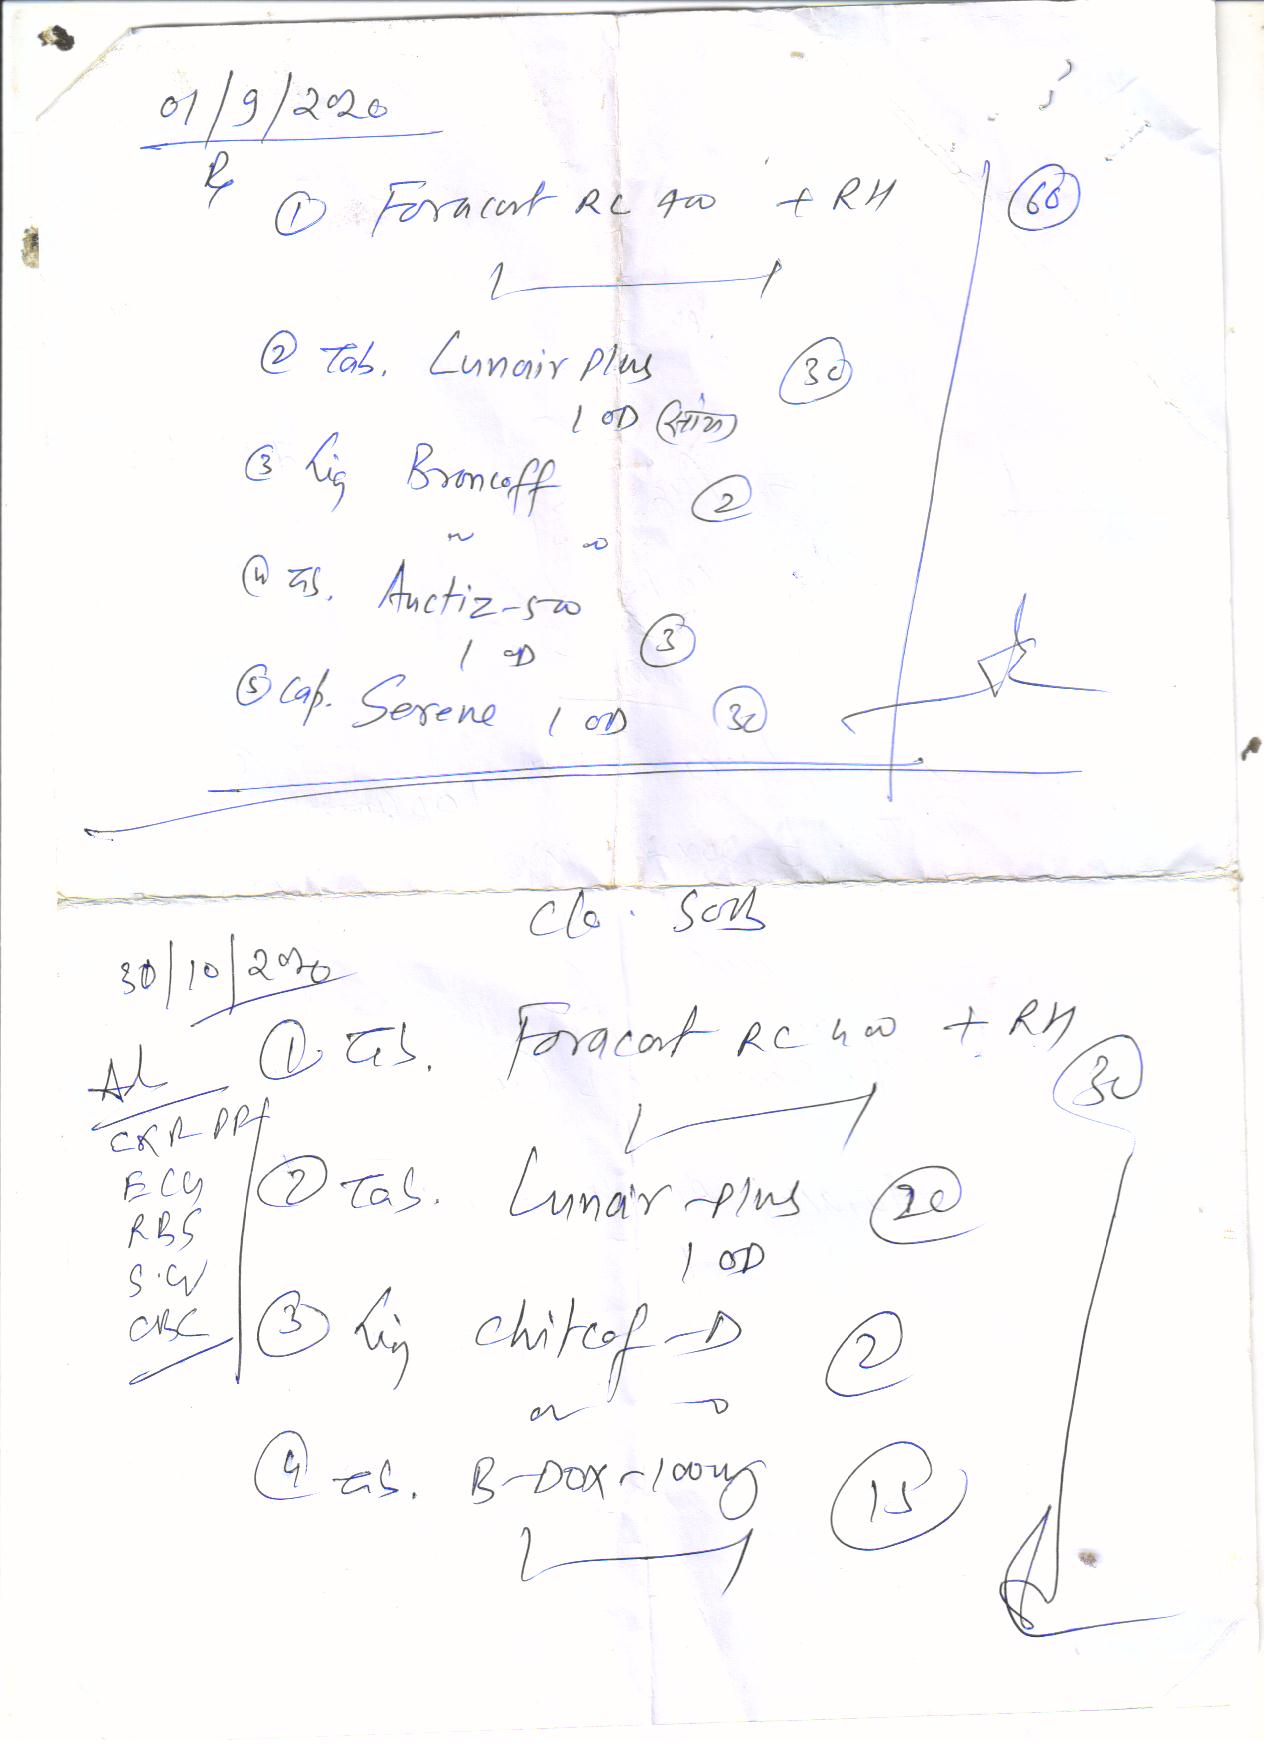 01/9/2020
Rx
① Foracort RC 400 + RH 60
② Tab. Lunair Plus 30
1 OD (शाम)
③ Liq Broncoff 2
④ Tab. Auctiz-500
1 OD 3
⑤ Cap. Serene 1 OD 30
C/o. SOB
30/10/2020
① Tab. Foracort RC 400 + RH 30
Ad
CXR PA
ECG
RBS
CBC
② Tab. Lunair-plus 20
1 OD
③ Liq Chitcof-D 2
④ Tab. B-DOX-100mg 15